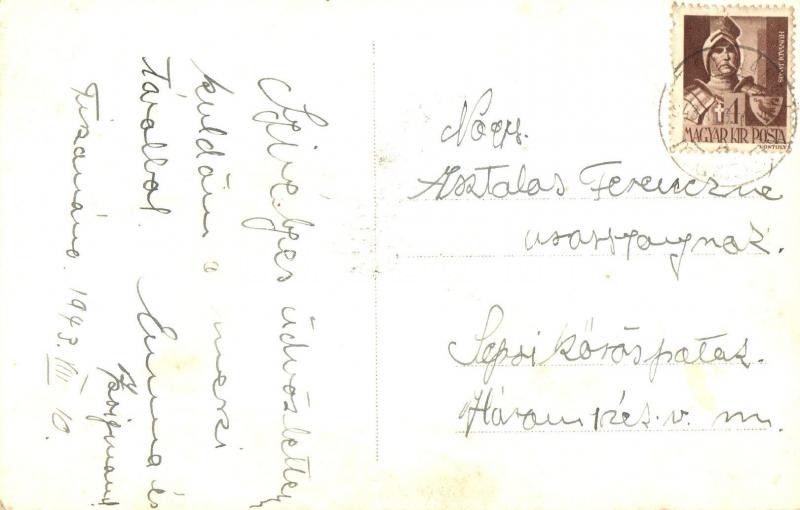 Szivélyes üdvözlettel
küldöm a messzi
távolból. Emma és
Zsigmond
Tiszanána. 1943. VIII 10.
HUNYADI JÁNOS
4f
MAGYAR KIR. POSTA
Nagys.
Asztalos Ferenczné
urasszonynak.
Sepsi Köröspatak.
Háromszék v. m.